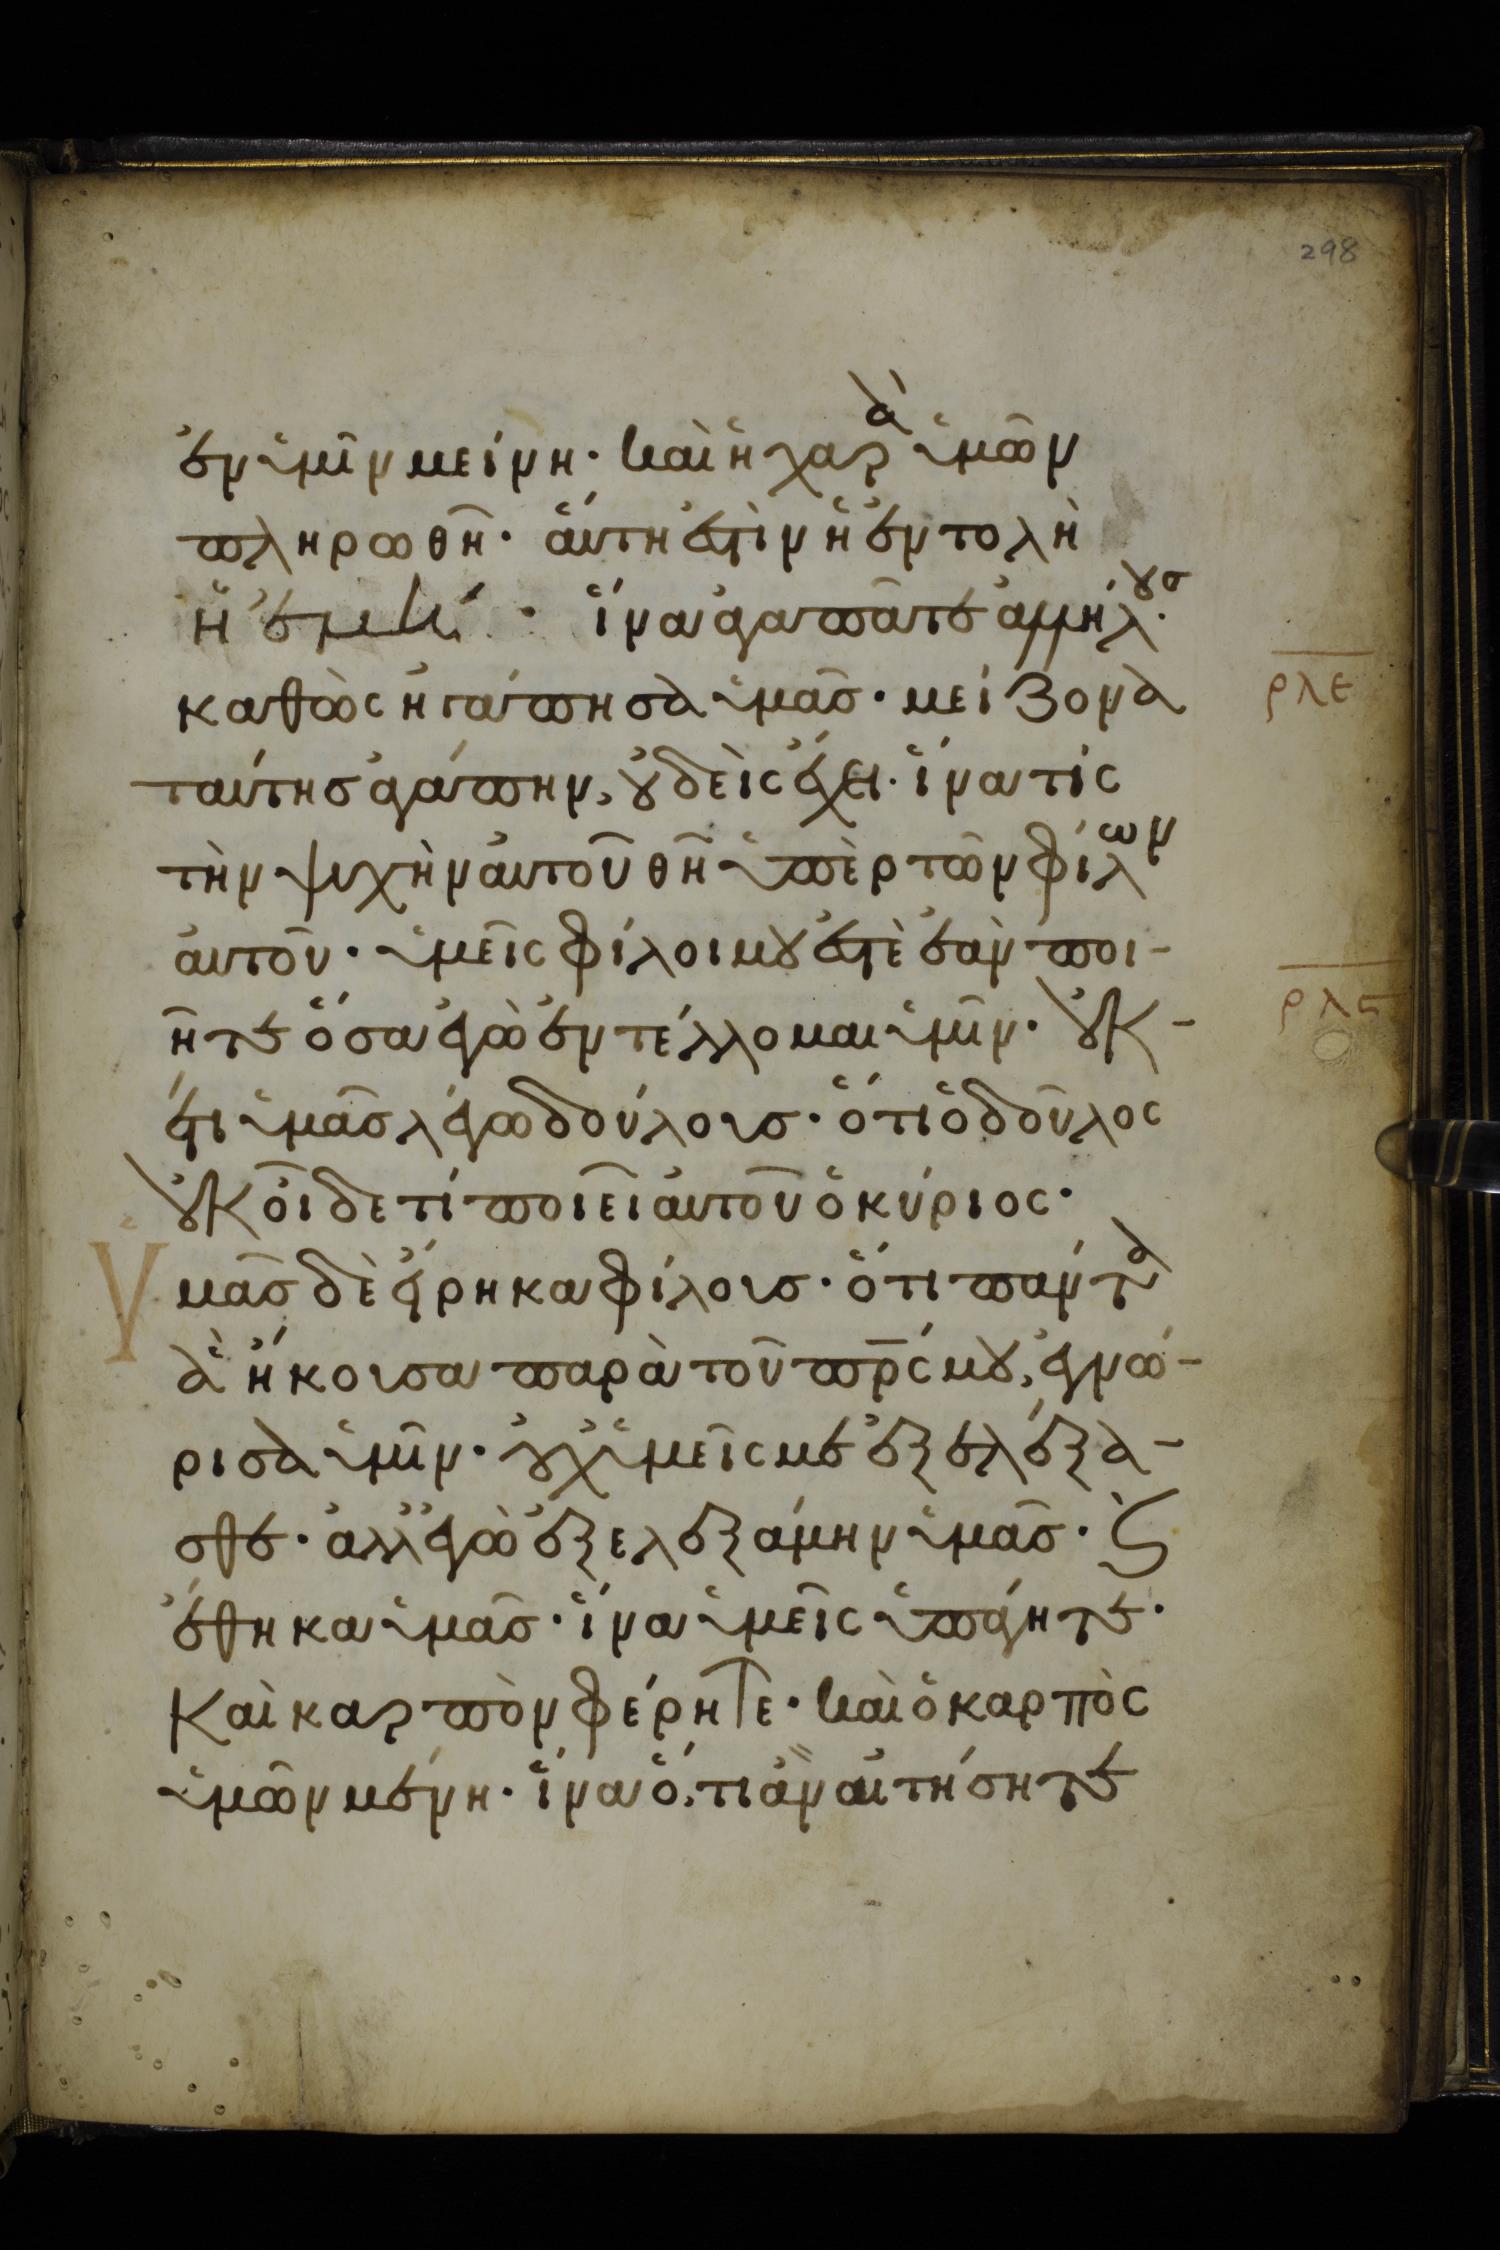 298
ἐν ὑμῖν μείνη· καὶ ἡ χαρὰ ὑμῶν
πληρωθῆ· ἅυτη ἐστὶν ἡ ἐντολὴ
ἡ ἐμή· ἵνα ἀγαπᾶτε ἀλλήλους·
καθὼς ἠγάπησα ὑμᾶς· μείζονα
ρλε
ταύτησ ἀγάπην, οὐδεὶς ἔχει· ἵνα τίς
τὴν ψυχὴν ἀυτοῦ θῆ ὑπὲρ τῶν φίλων
ἀυτοῦ· ὑμεῖς φίλοι μου ἐστὲ ἐὰν ποι-
ρλϛ
ῆτε ὅσα ἐγὼ ἐντέλλομαι ὑμῖν· οὐκ-
έτι ὑμᾶσ λέγω δούλουσ· ὅτι ὁ δοῦλος
οὐκ οἶδε τί ποιεῖ ἀυτοῦ ὁ κύριος·
Ὑμᾶσ δὲ ἔιρηκα φίλουσ· ὅτι πάντα
ἃ ἤκουσα παρὰ τοῦ πρ̅ς μου, ἐγνώ-
ρισα ὑμῖν· οὐχ ὑμεῖς με ἐξελέξα-
σθε· ἀλλ' ἐγὼ ἐξελεξάμην ὑμᾶσ· ϗ
ἔθηκα ὑμᾶσ· ἵνα ὑμεῖς ὑπάγητε·
καὶ καρπὸν φέρητε· καὶ ὁ καρπὸς
ὑμῶν μένη· ἵνα ὅ,τι ἂν αἰτήσητε